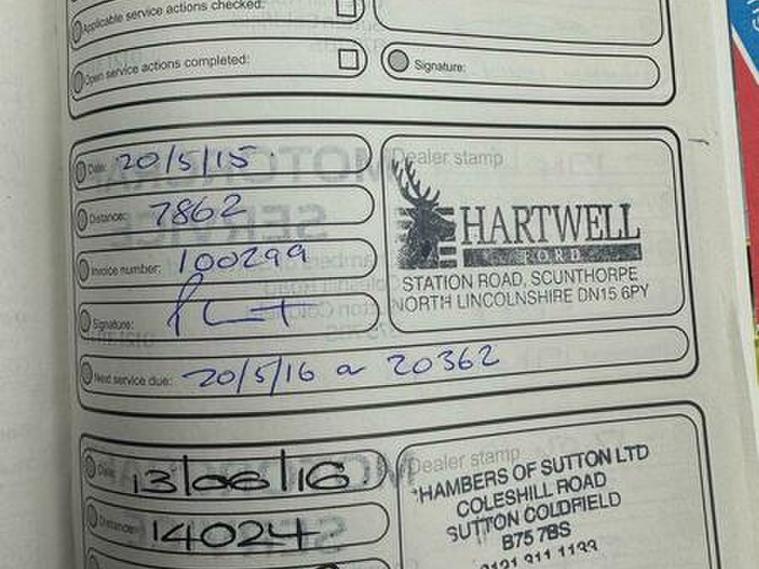 Applicable service actions checked:
Open service actions completed:
Signature:
Date: 20/5/15
Distance: 7862
Invoice number: 100299
Signature:
Dealer stamp
HARTWELL
FORD
STATION ROAD, SCUNTHORPE
NORTH LINCOLNSHIRE DN15 6PY
Next service due: 20/5/16 or 20362
Date: 13/06/16
Distance: 14024
Dealer stamp
HAMBERS OF SUTTON LTD
COLESHILL ROAD
SUTTON COLDFIELD
B75 7BS
0121 311 1133